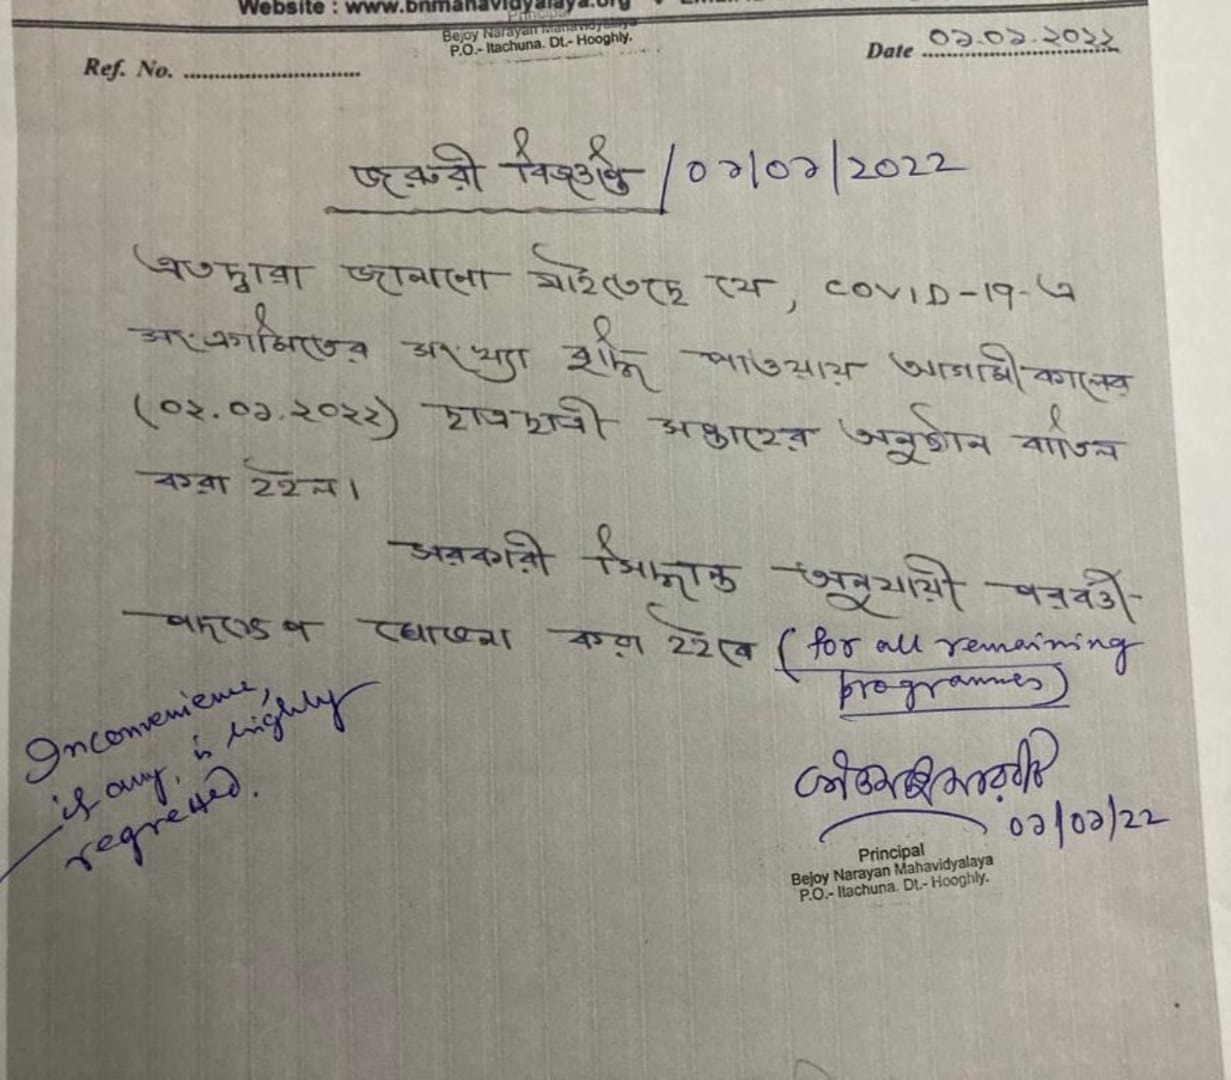 Website : www.bnmahavidyalaya.org
Principal
Bejoy Narayan Mahavidyalaya
P.O.- Itachuna. Dt.- Hooghly.
Ref. No. ................................
Date ০১.০১.২০২২
জরুরী বিজ্ঞপ্তি / ০১/০১/2022
এতদ্বারা জানানো যাইতেছে যে, COVID-19-এ
সংক্রামিতের সংখ্যা বৃদ্ধি পাওয়ায় আগামীকালের
(০২.০১.২০২২) ছাত্রছাত্রী সপ্তাহের অনুষ্ঠান বাতিল
করা হইল।
সরকারী সিদ্ধান্ত অনুযায়ী পরবর্তী
পদক্ষেপ ঘোষনা করা হইবে (for all remaining
programmes)
Inconvenience,
if any, is highly
regretted.
০১/০১/22
Principal
Bejoy Narayan Mahavidyalaya
P.O.- Itachuna. Dt.- Hooghly.